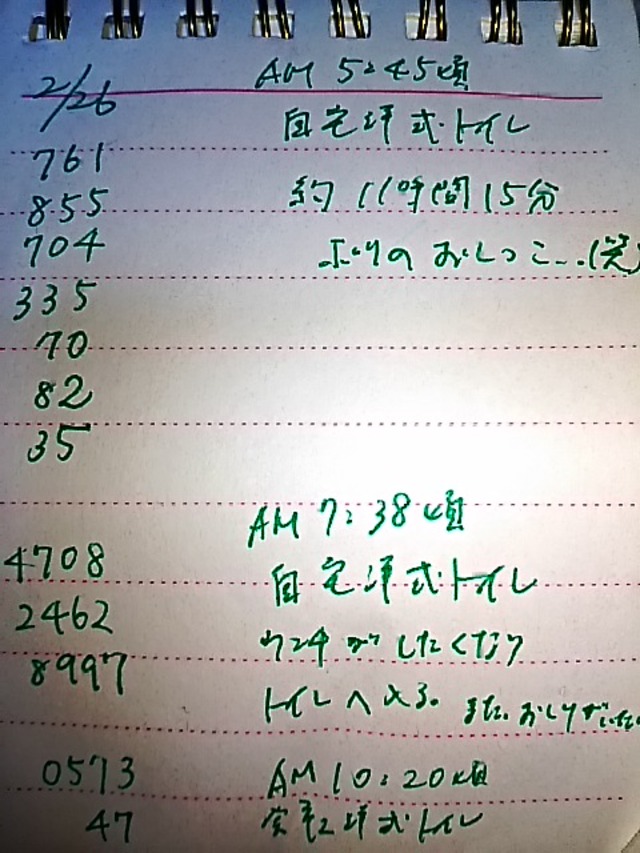 2/26 AM 5:45頃
761 自宅洋式トイレ
855 約11時間15分
704 ぶりのおしっこ...(笑)
335
70
82
35
AM 7:38頃
4708 自宅洋式トイレ
2462 ウンチがしたくなり
8997 トイレへ入る。また、おしりがいた
0573 AM 10:20頃
47 洋式トイレ